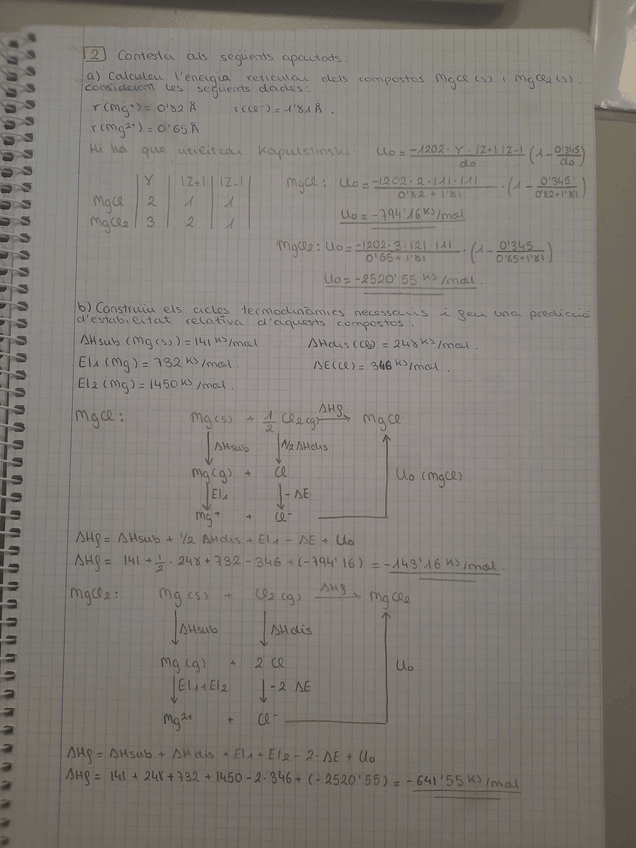 2 Contesta als següents apartats:
a) Calculeu l'energia reticular dels compostos MgCl(s) i MgCl2(s).
considerant les següents dades:
r(Mg+) = 0'82 Å r(Cl-) = 1'81 Å.
r(Mg2+) = 0'65 Å
Hi ha que utilitzar Kapustinski U0 = -1202·γ·|Z+||Z-|/d0 (1 - 0'345/d0)
γ |Z+| |Z-|
MgCl 2 1 1
MgCl2 3 2 1
MgCl: U0 = -1202·2·|1|·|1|/0'82+1'81 · (1 - 0'345/0'82+1'81)
U0 = -794'16 KJ/mol
MgCl2: U0 = -1202·3·|2|·|1|/0'65+1'81 · (1 - 0'345/0'65+1'81)
U0 = -2520'55 KJ/mol.
b) Construiu els cicles termodinàmics necessaris i feu una predicció
d'estabilitat relativa d'aquests compostos.
ΔHsub (Mg(s)) = 141 KJ/mol ΔHdis (Cl2) = 248 KJ/mol.
EI1 (Mg) = 732 KJ/mol ΔE(Cl) = 346 KJ/mol.
EI2 (Mg) = 1450 KJ/mol.
MgCl: Mg(s) + 1/2 Cl2(g) ΔHf→ MgCl
↓ΔHsub ↓1/2 ΔHdis
Mg(g) + Cl U0 (MgCl)
↓EI1 ↓-ΔE
Mg+ + Cl-
ΔHf = ΔHsub + 1/2 ΔHdis + EI1 - ΔE + U0
ΔHf = 141 + 1/2 · 248 + 732 - 346 + (-794'16) = -143'16 KJ/mol.
MgCl2: Mg(s) + Cl2(g) ΔHf→ MgCl2
↓ΔHsub ↓ΔHdis
Mg(g) + 2 Cl U0
↓EI1+EI2 ↓-2 ΔE
Mg2+ + Cl-
ΔHf = ΔHsub + ΔHdis + EI1 + EI2 - 2·ΔE + U0
ΔHf = 141 + 248 + 732 + 1450 - 2·346 + (-2520'55) = -641'55 KJ/mol